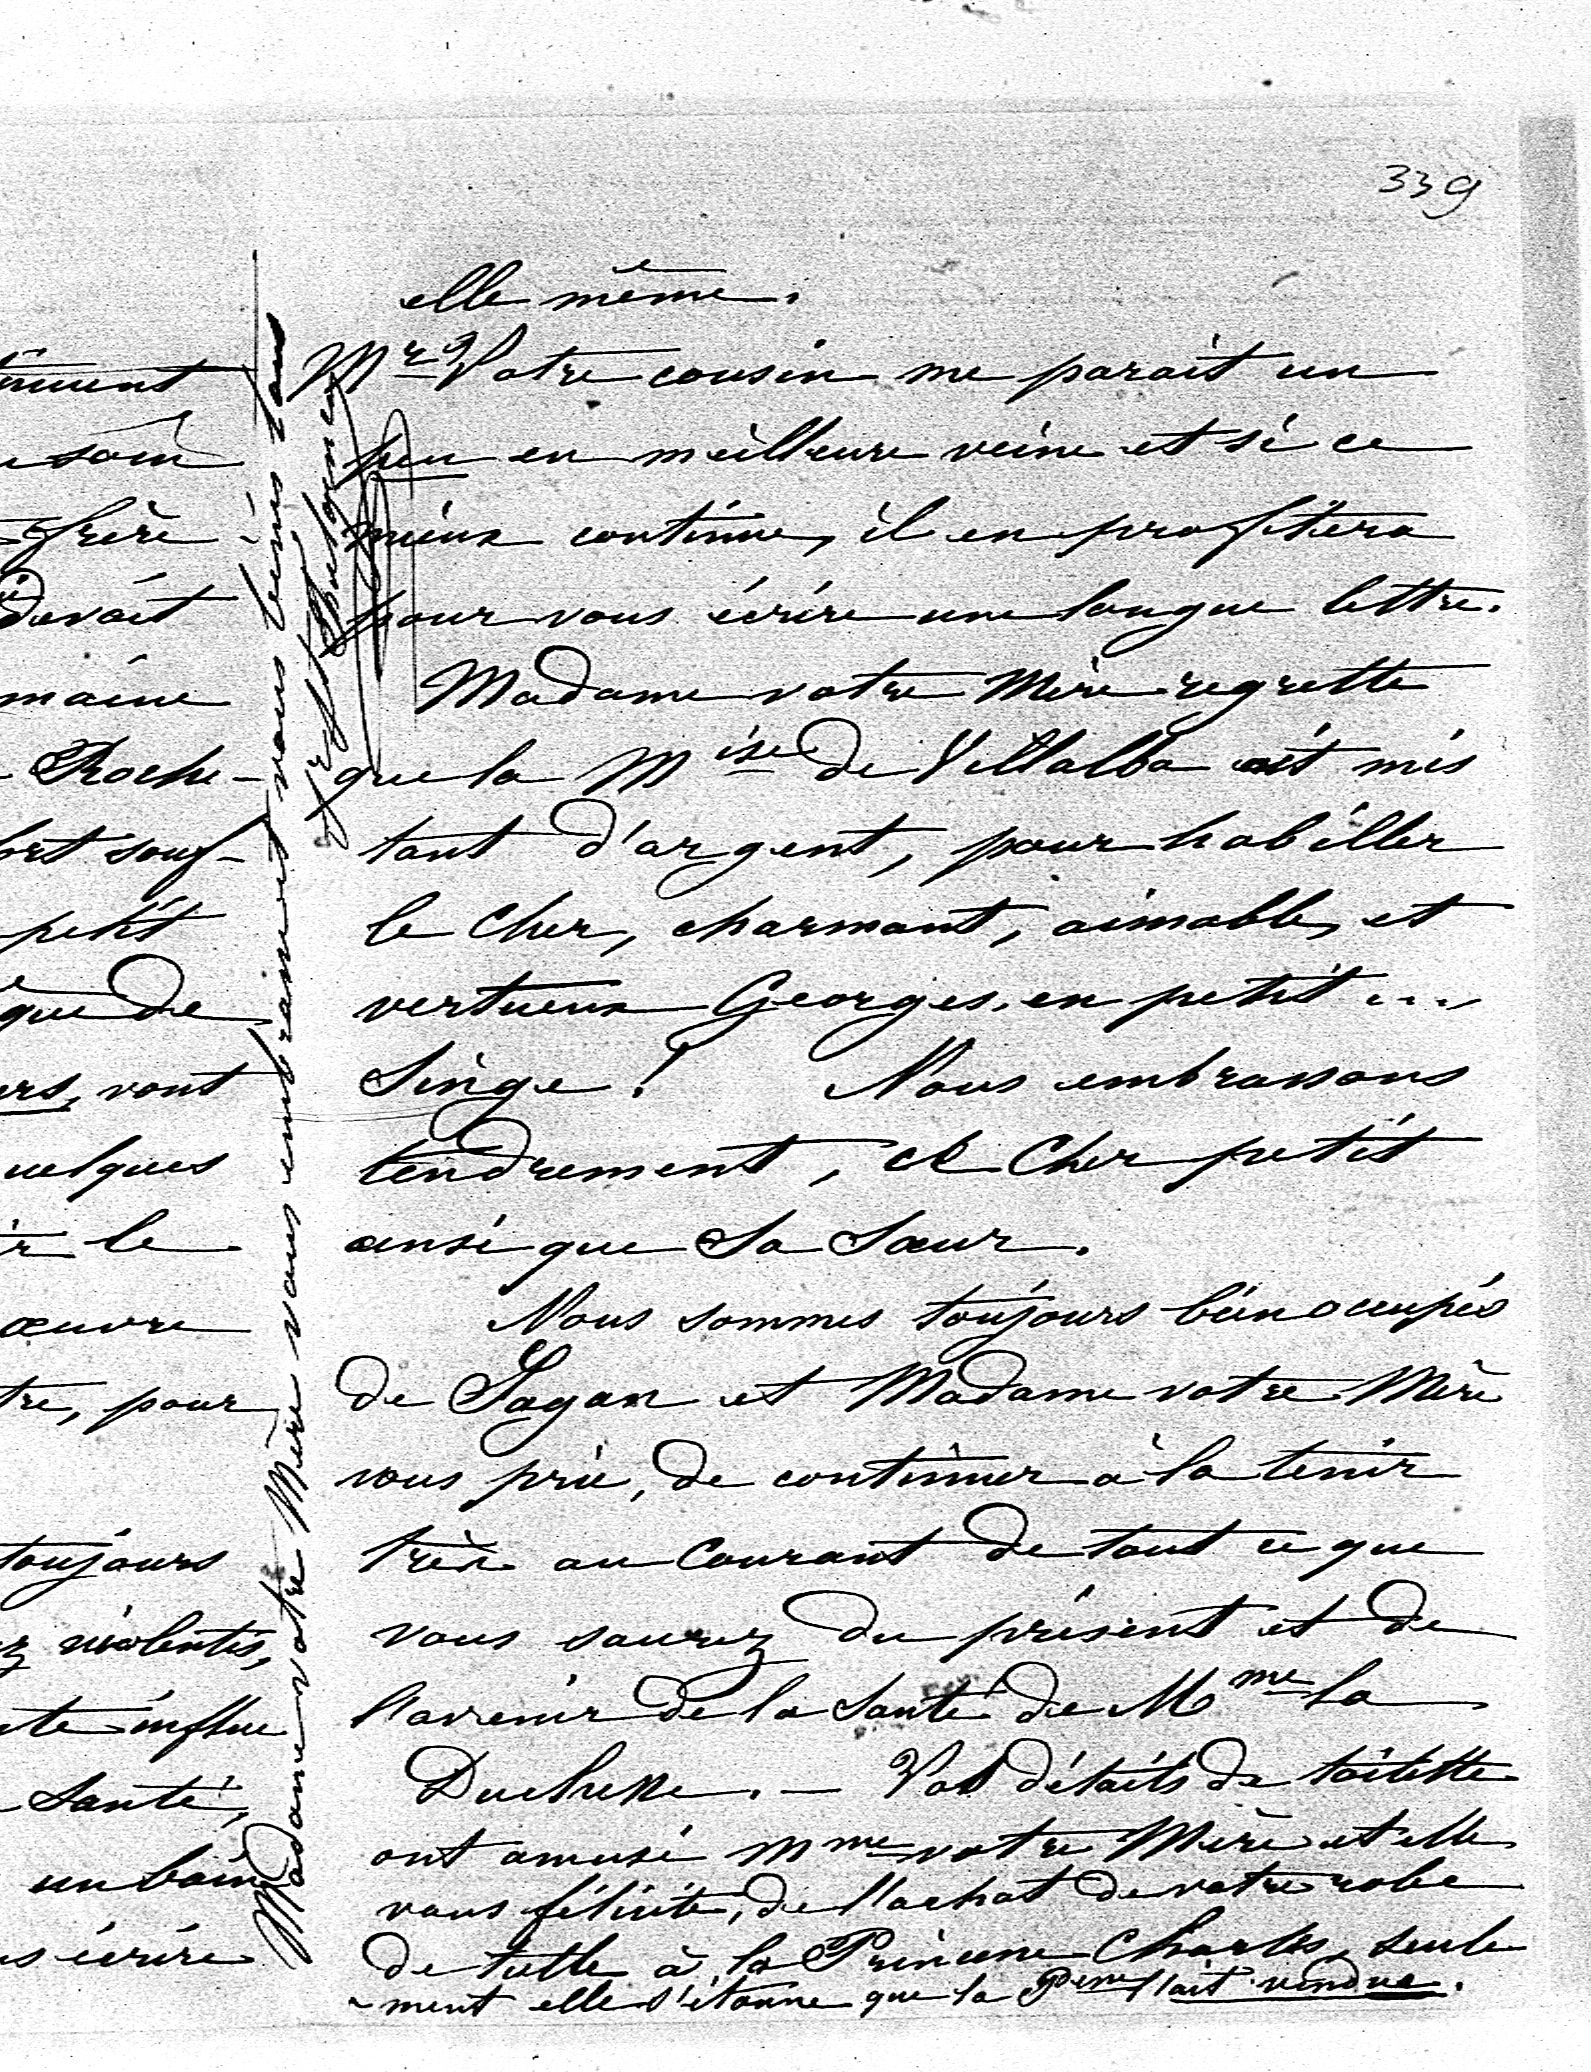 339
tinuent
soin
frère
devait
maine
Roche-
fort souf-
petit
que de
ers, vont
uelques
ir le
œuvre
tre, pour
toujours
z violentes,
te influe
Santé,
un bain
s écrire
Madame votre Mère vous embrassent vous bénis
elle même.
Mr Votre cousin me parait un
peu en meilleure veine et si ce
mieux continue, il en profitera
pour vous écrire une longue lettre.
Madame votre Mère regrette
que la Mise de Villalba ait mis
tant d'argent, pour habiller
le Cher, charmant, aimable, et
vertueux Georges, en petit ...
Singe! Nous embrassons
tendrement, ce Cher petit
ainsi que Sa Sœur.
Nous sommes toujours bien occupés
de Sagan et Madame votre Mère
vous prie, de continuer à la tenir
très au Courant de tout ce que
vous saurez du présent et de
l'avenir de la Santé de Mme la
Duchesse. — Vos détails de toilette
ont amusé Mme votre Mère et elle
vous félicite, de l'achat de votre robe
de tulle à la Princesse Charles, seule
-ment elle s'étonne que la Psse l'ait vendue.